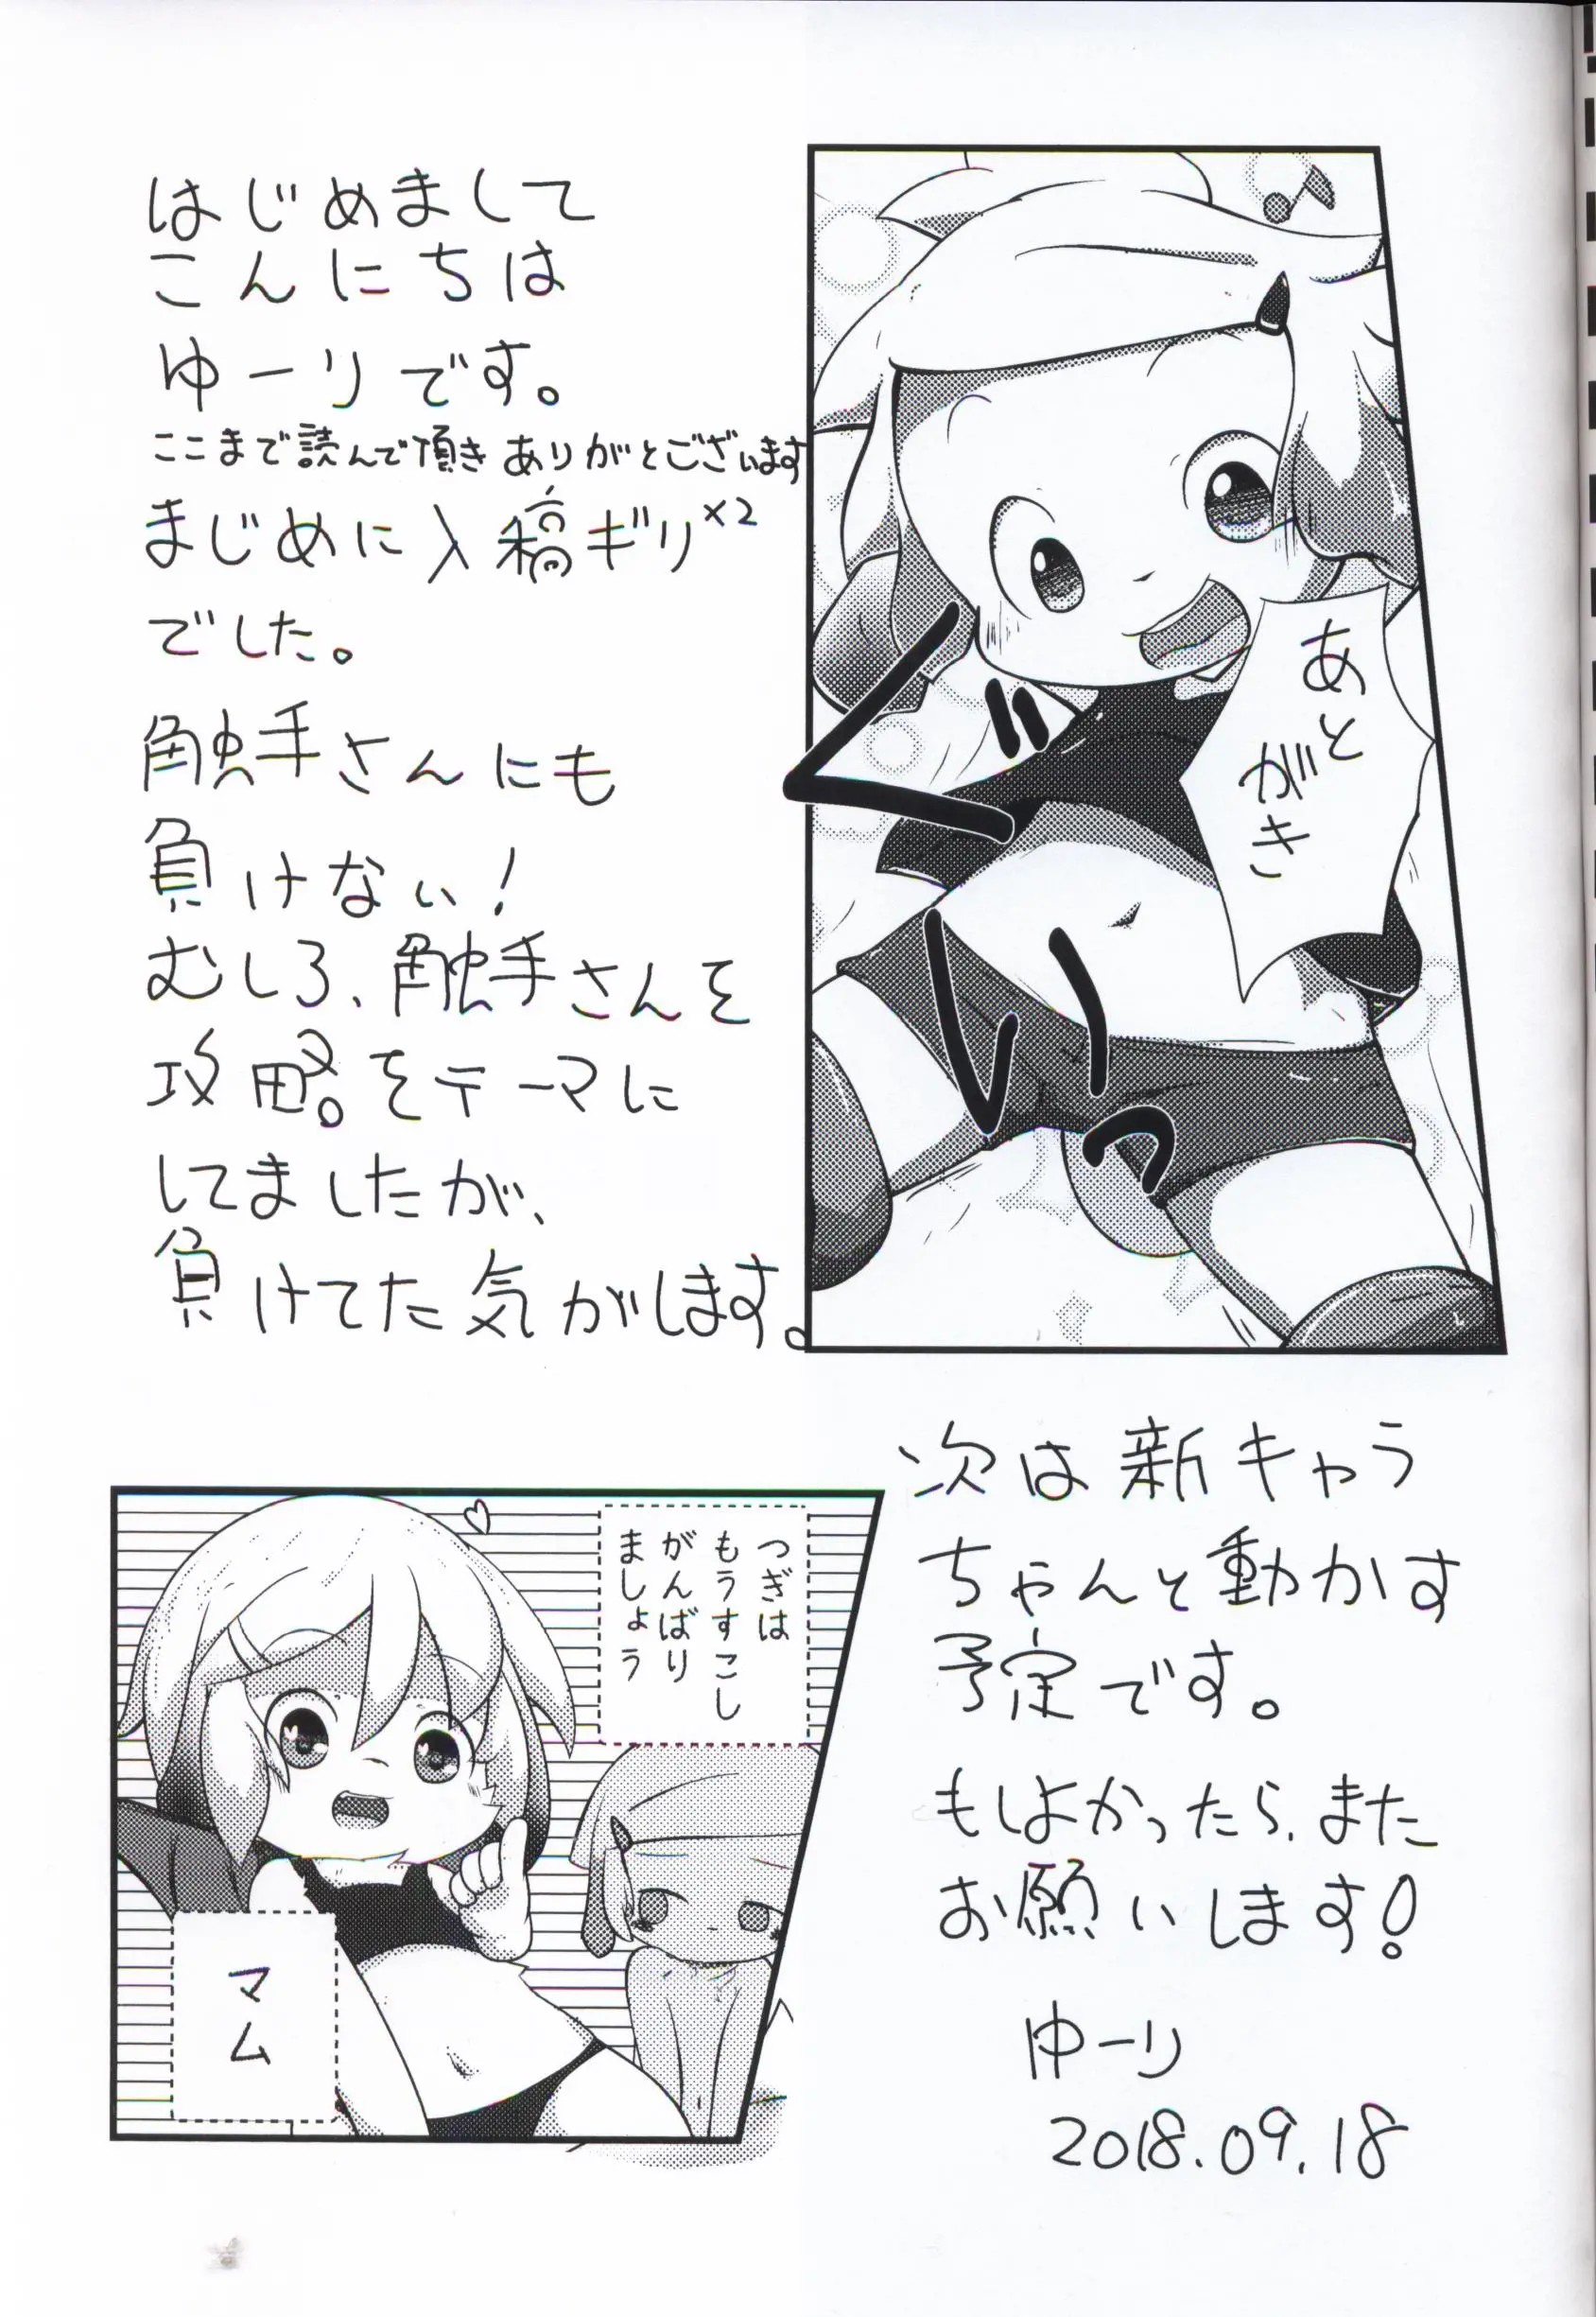 はじめまして
こんにちは
ゆーりです。
ここまで読んで頂きありがとございます
まじめに入稿ギリ×2
でした。
触手さんにも
負けない!
むしろ、触手さんを
攻略。をテーマに
してましたが、
負けてた気がします。
あと
がき
ぐいっ
次は新キャラ
ちゃんと動かす
予定です。
もしよかったら、また
お願いします!
ゆーり
2018.09.18
つぎは
もうすこし
がんばり
ましょう
マム